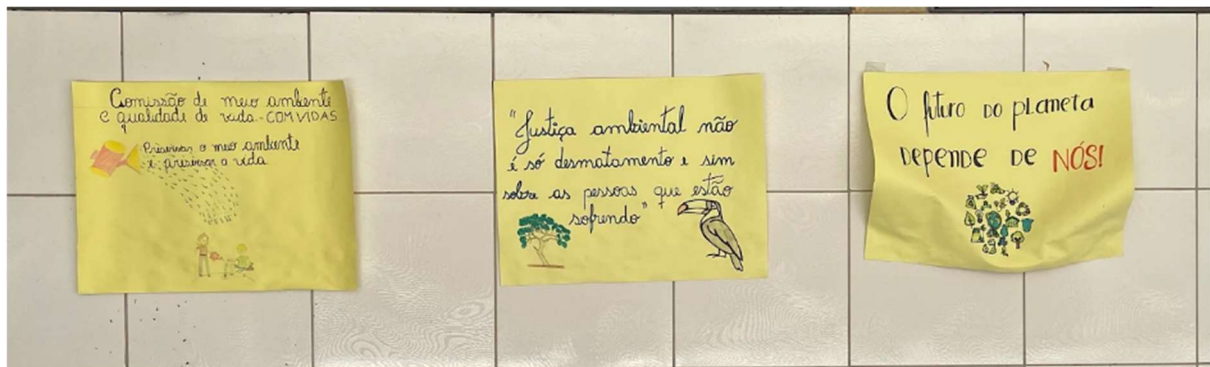 Comissão de meio ambiente
e qualidade de vida - COM VIDAS
Preservar o meio ambiente
é preservar a vida
"Justiça ambiental não
é só desmatamento e sim
sobre as pessoas que estão
sofrendo"
O futuro do planeta
DEPENDE DE NÓS!